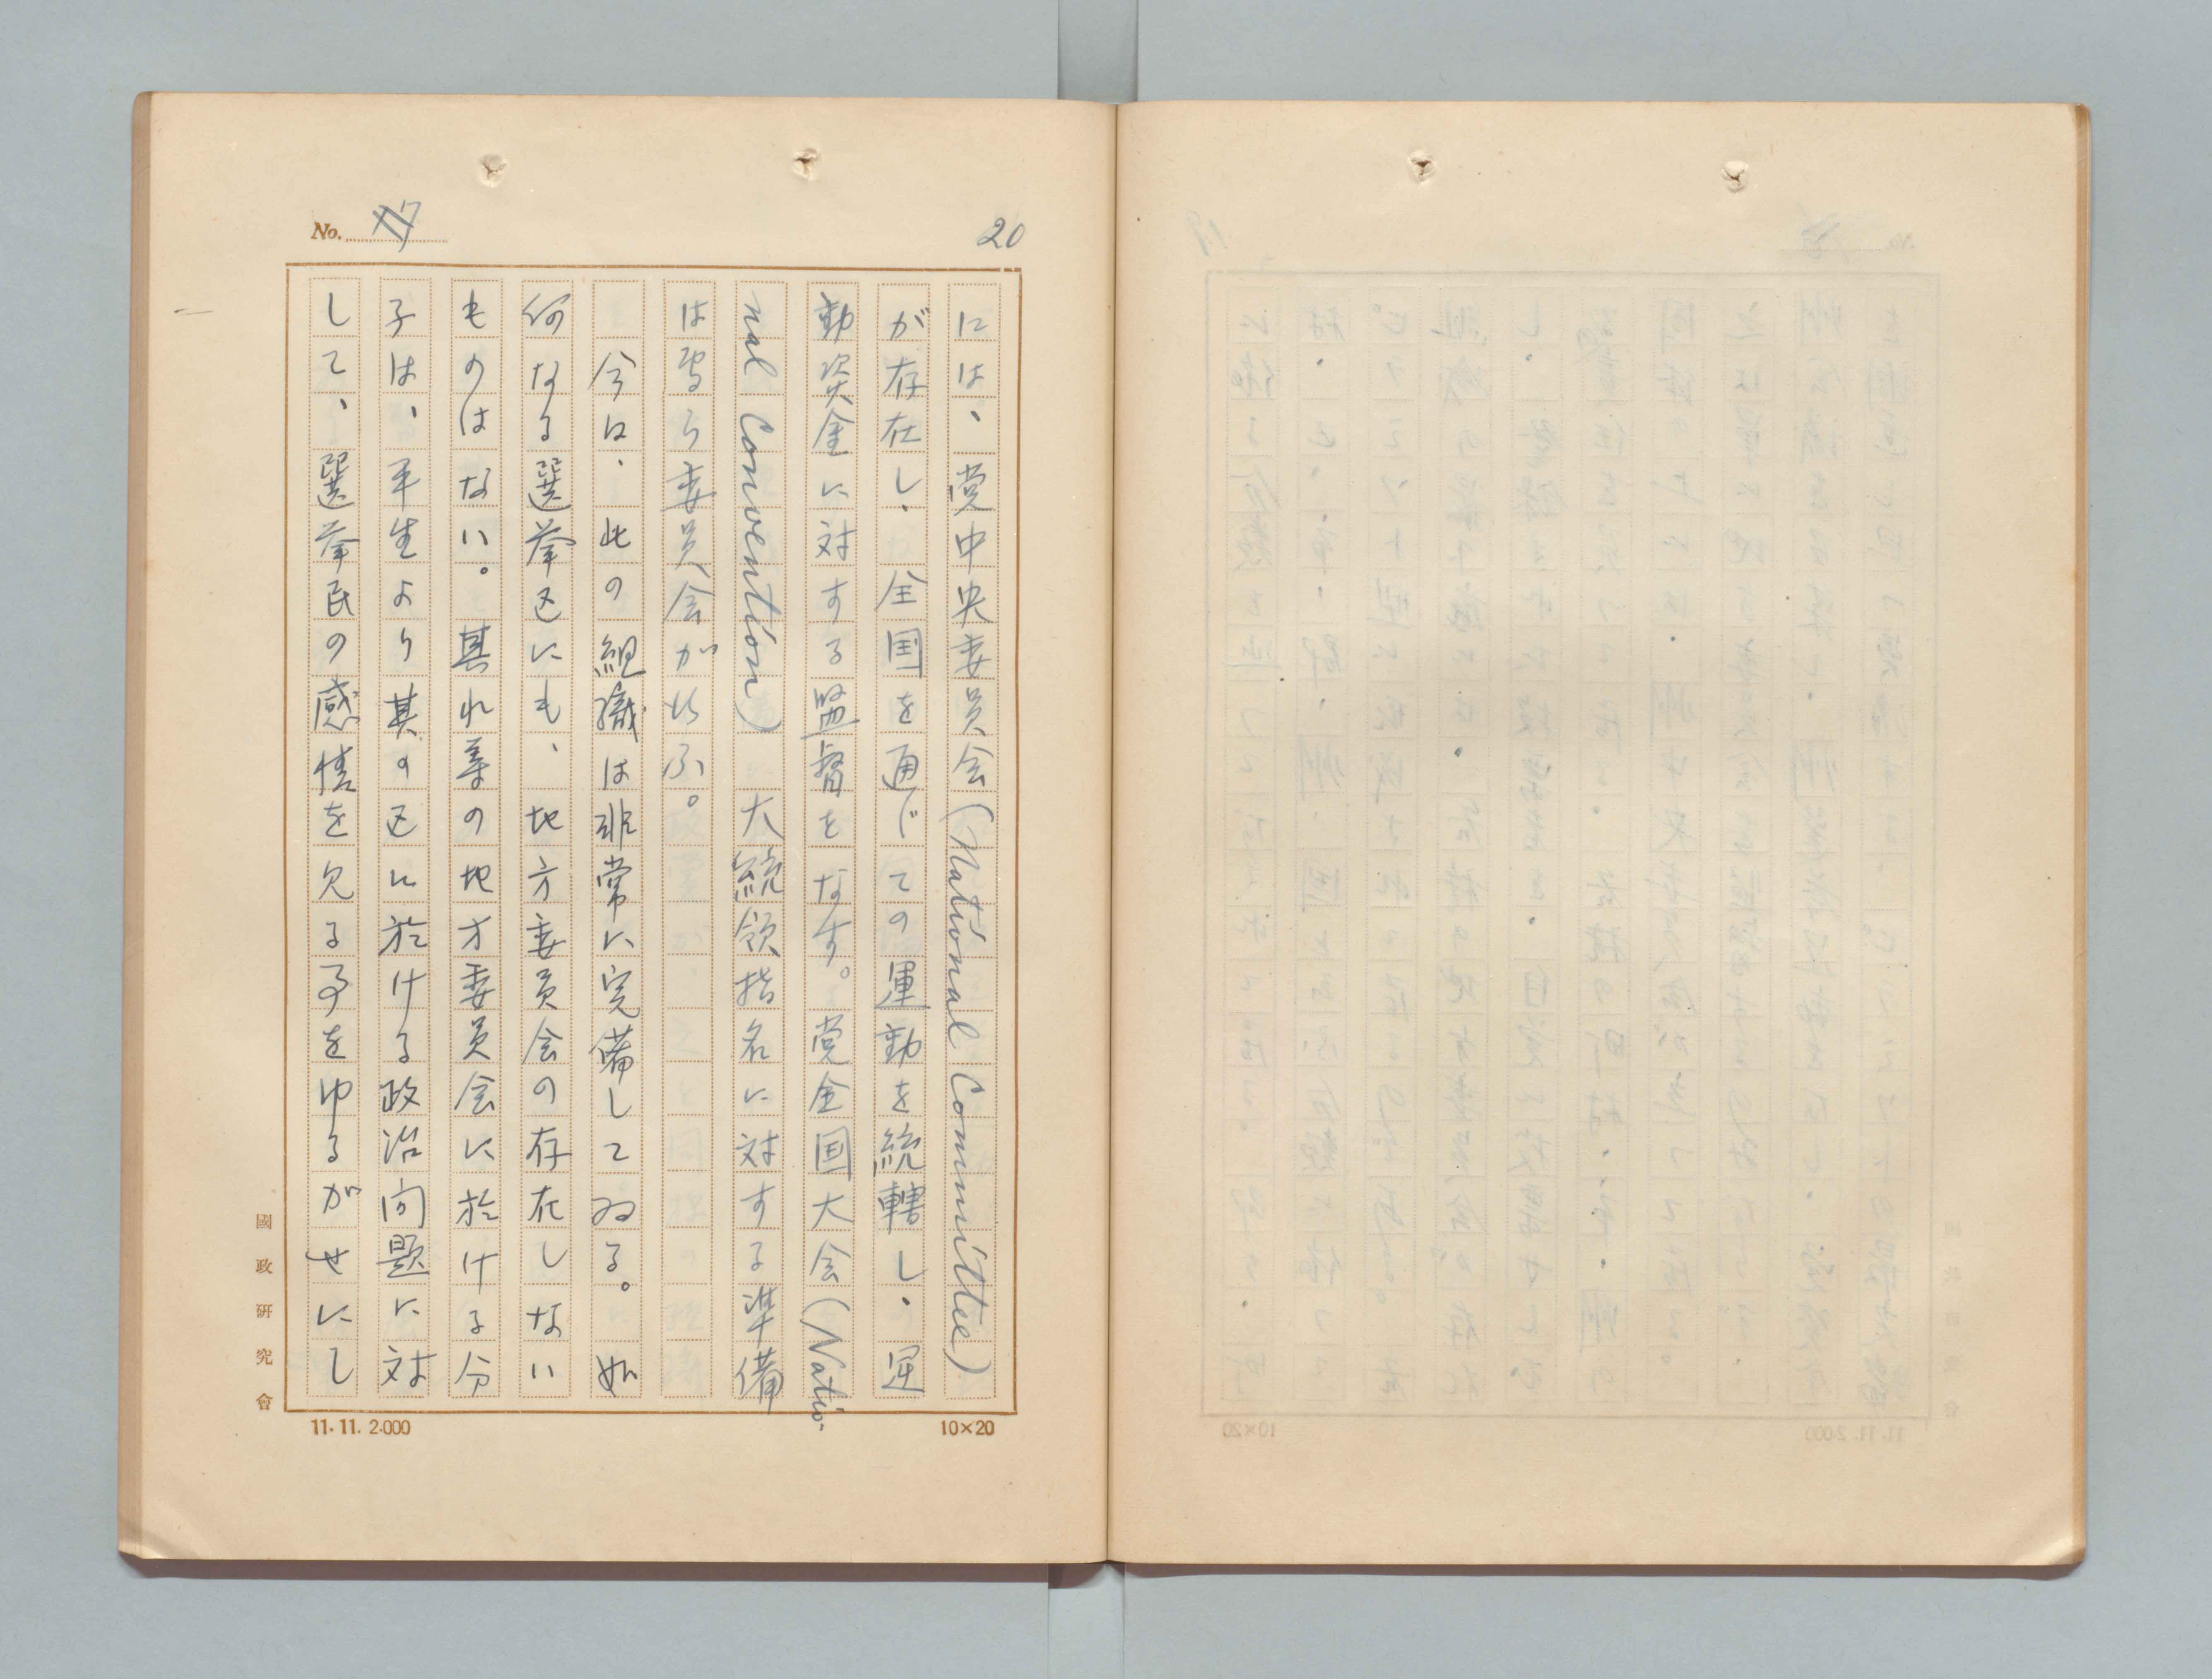 20
No.
には、党中央委員会(National Committee)
が存在し、全国を通じての運動を統轄し、運
動資金に対する監督をなす。党全国大会(Natio-
nal Convention)大統領指名に対する準備
は専ら委員会が行ふ。
今は、此の組織は非常に完備してゐる。如
何なる選挙区にも、地方委員会の存在しない
ものはない。其れ等の地方委員会に於ける分
子は、平生より其の区に於ける政治問題に対
して、選挙民の感情を欠る事をゆるがせにし
國政研究會
11.11.2.000
10×20